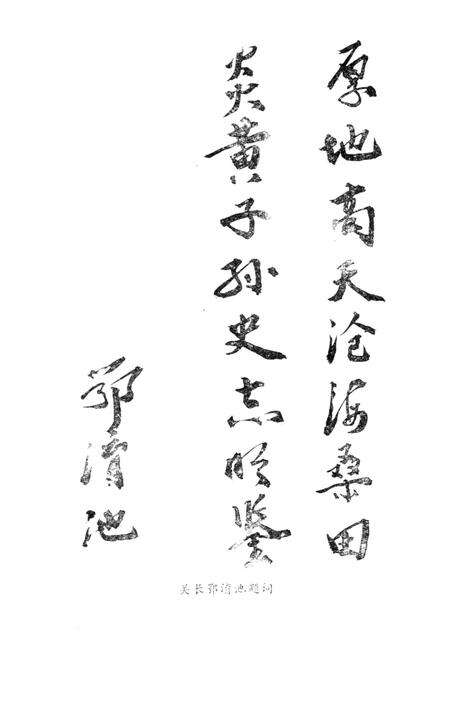 厚地高天沧海桑田
炎黄子孙史志明鉴
鄂清池
关长鄂清池题词